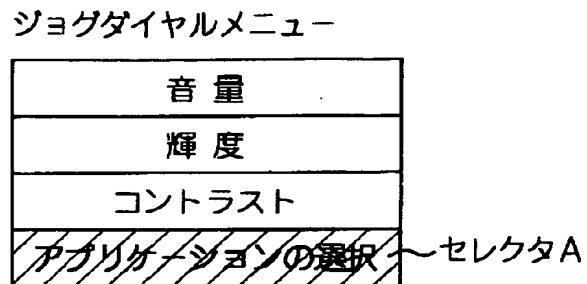 ジョグダイヤルメニュー
音量
輝度
コントラスト
アプリケーションの選択
セレクタA